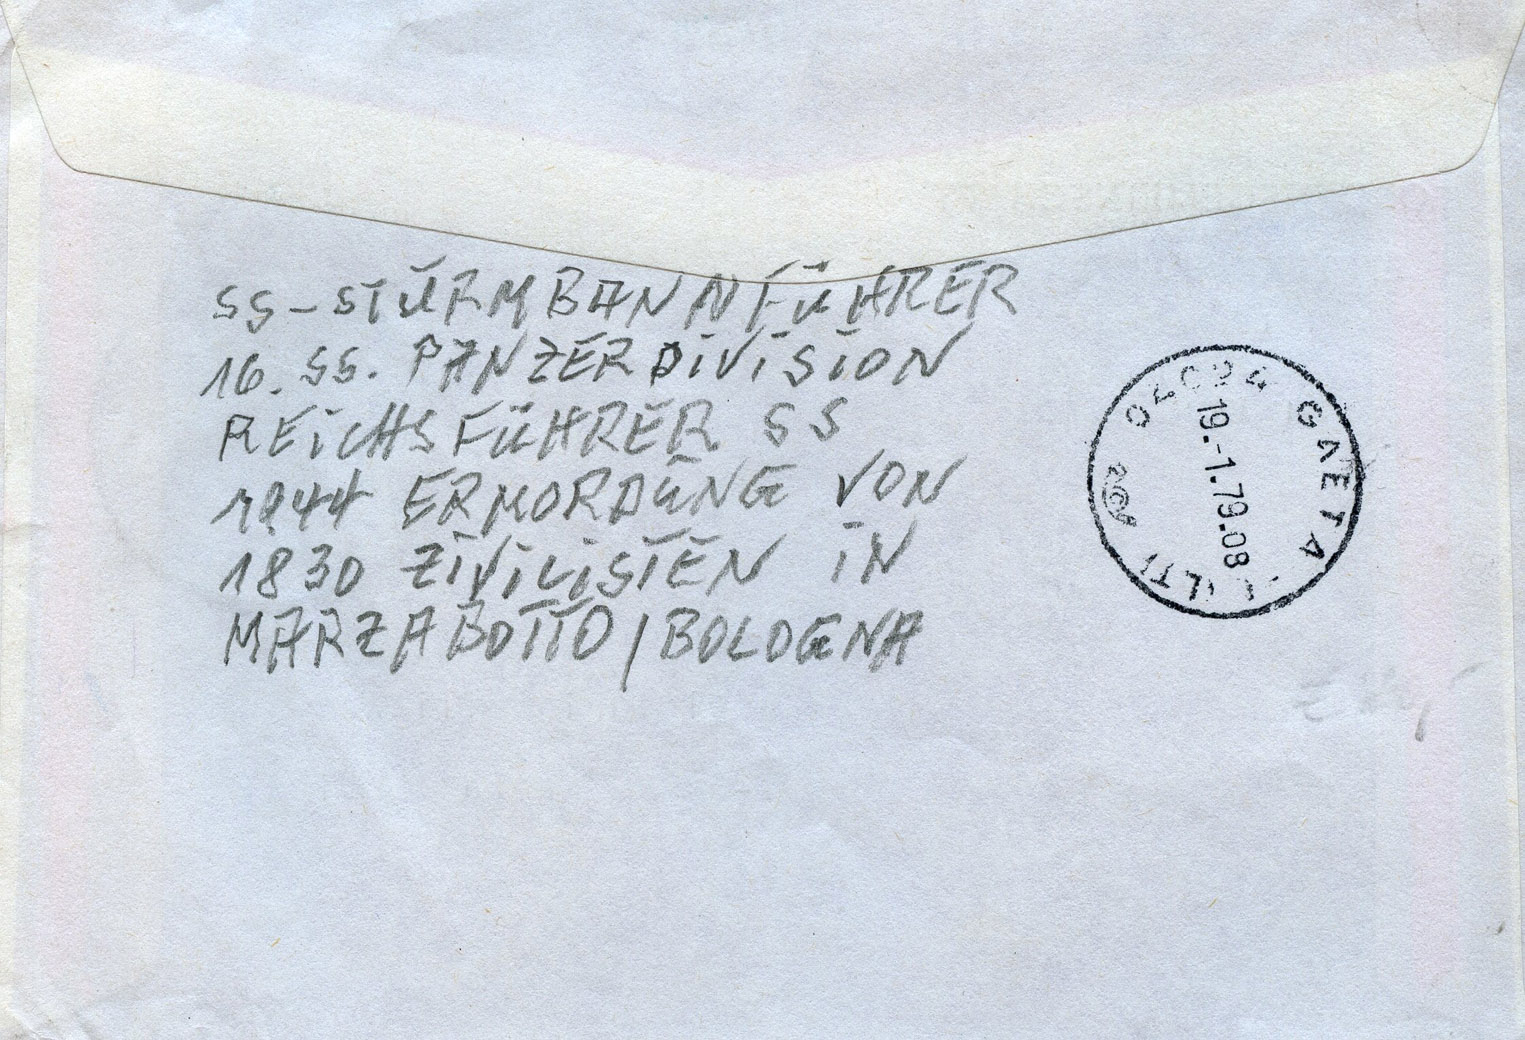 SS-STŪRMBANNFŪHRER
16. SS. PANZERDIVISION
REICHSFŪHRER SS
1944 ERMORDŪNG VON
1830 ZIVILISTEN IN
MARZABOTTO/BOLOGNA
GAETA
19.-1.79.08